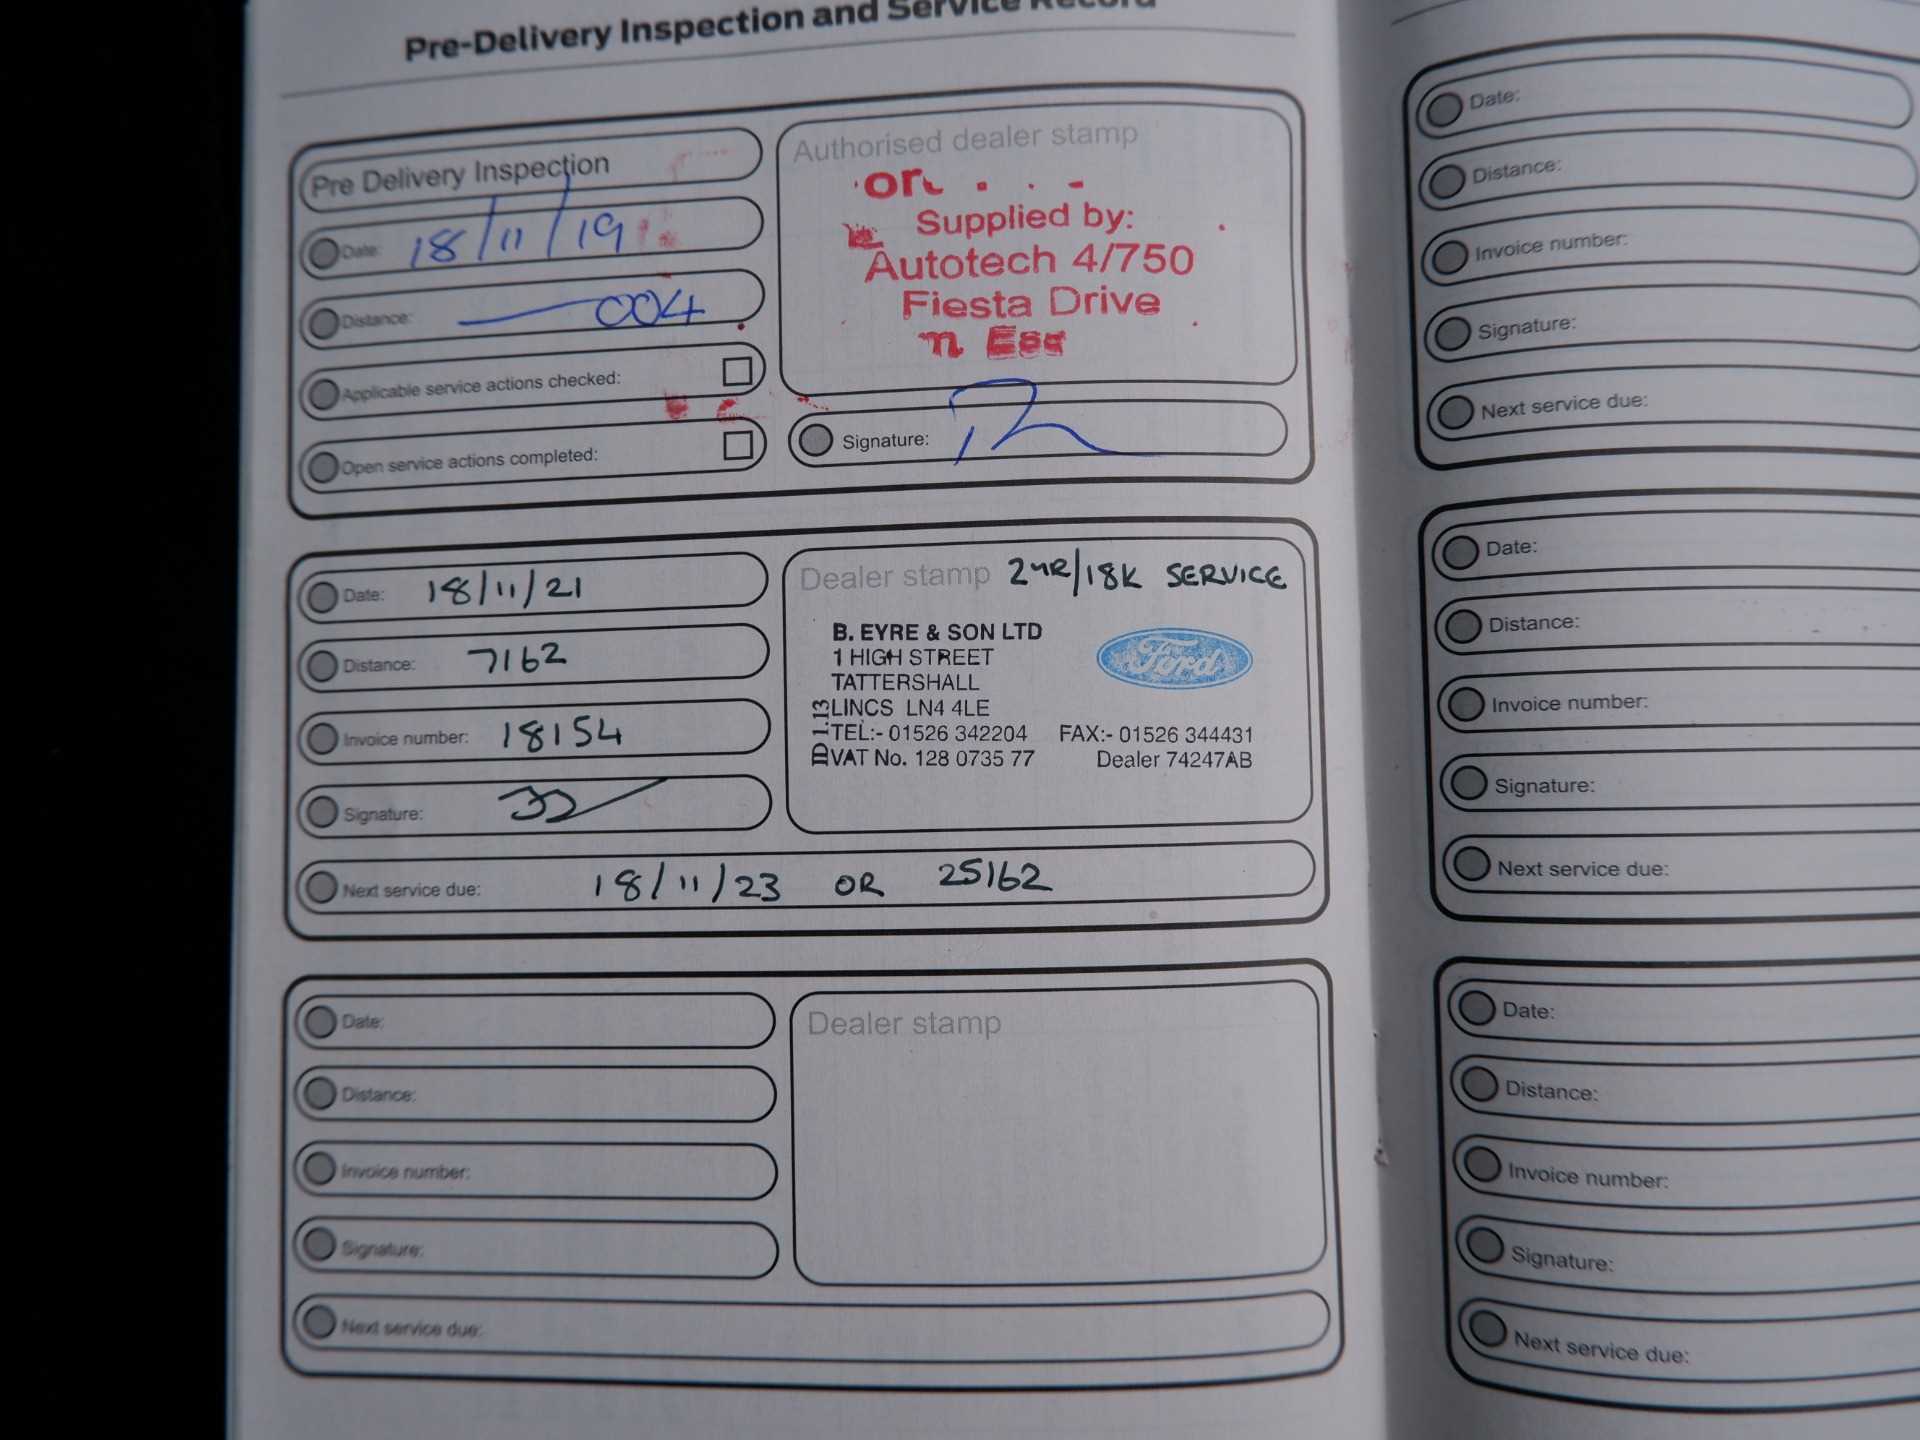 Pre-Delivery Inspection and Service Record
Pre Delivery Inspection
Date: 18/11/19
Distance: — 004
Applicable service actions checked:
Open service actions completed:
Authorised dealer stamp
Supplied by:
Autotech 4/750
Fiesta Drive
Signature:
Date: 18/11/21
Distance: 7162
Invoice number: 18154
Signature:
Next service due: 18/11/23 OR 25162
Dealer stamp 2YR/18K SERVICE
B. EYRE & SON LTD
1 HIGH STREET
TATTERSHALL
LINCS LN4 4LE
TEL:- 01526 342204 FAX:- 01526 344431
VAT No. 128 0735 77 Dealer 74247AB
ID 1.13
Ford
Date:
Distance:
Invoice number:
Signature:
Next service due:
Dealer stamp
Date:
Distance:
Invoice number:
Signature:
Next service due:
Date:
Distance:
Invoice number:
Signature:
Next service due:
Date:
Distance:
Invoice number:
Signature:
Next service due: